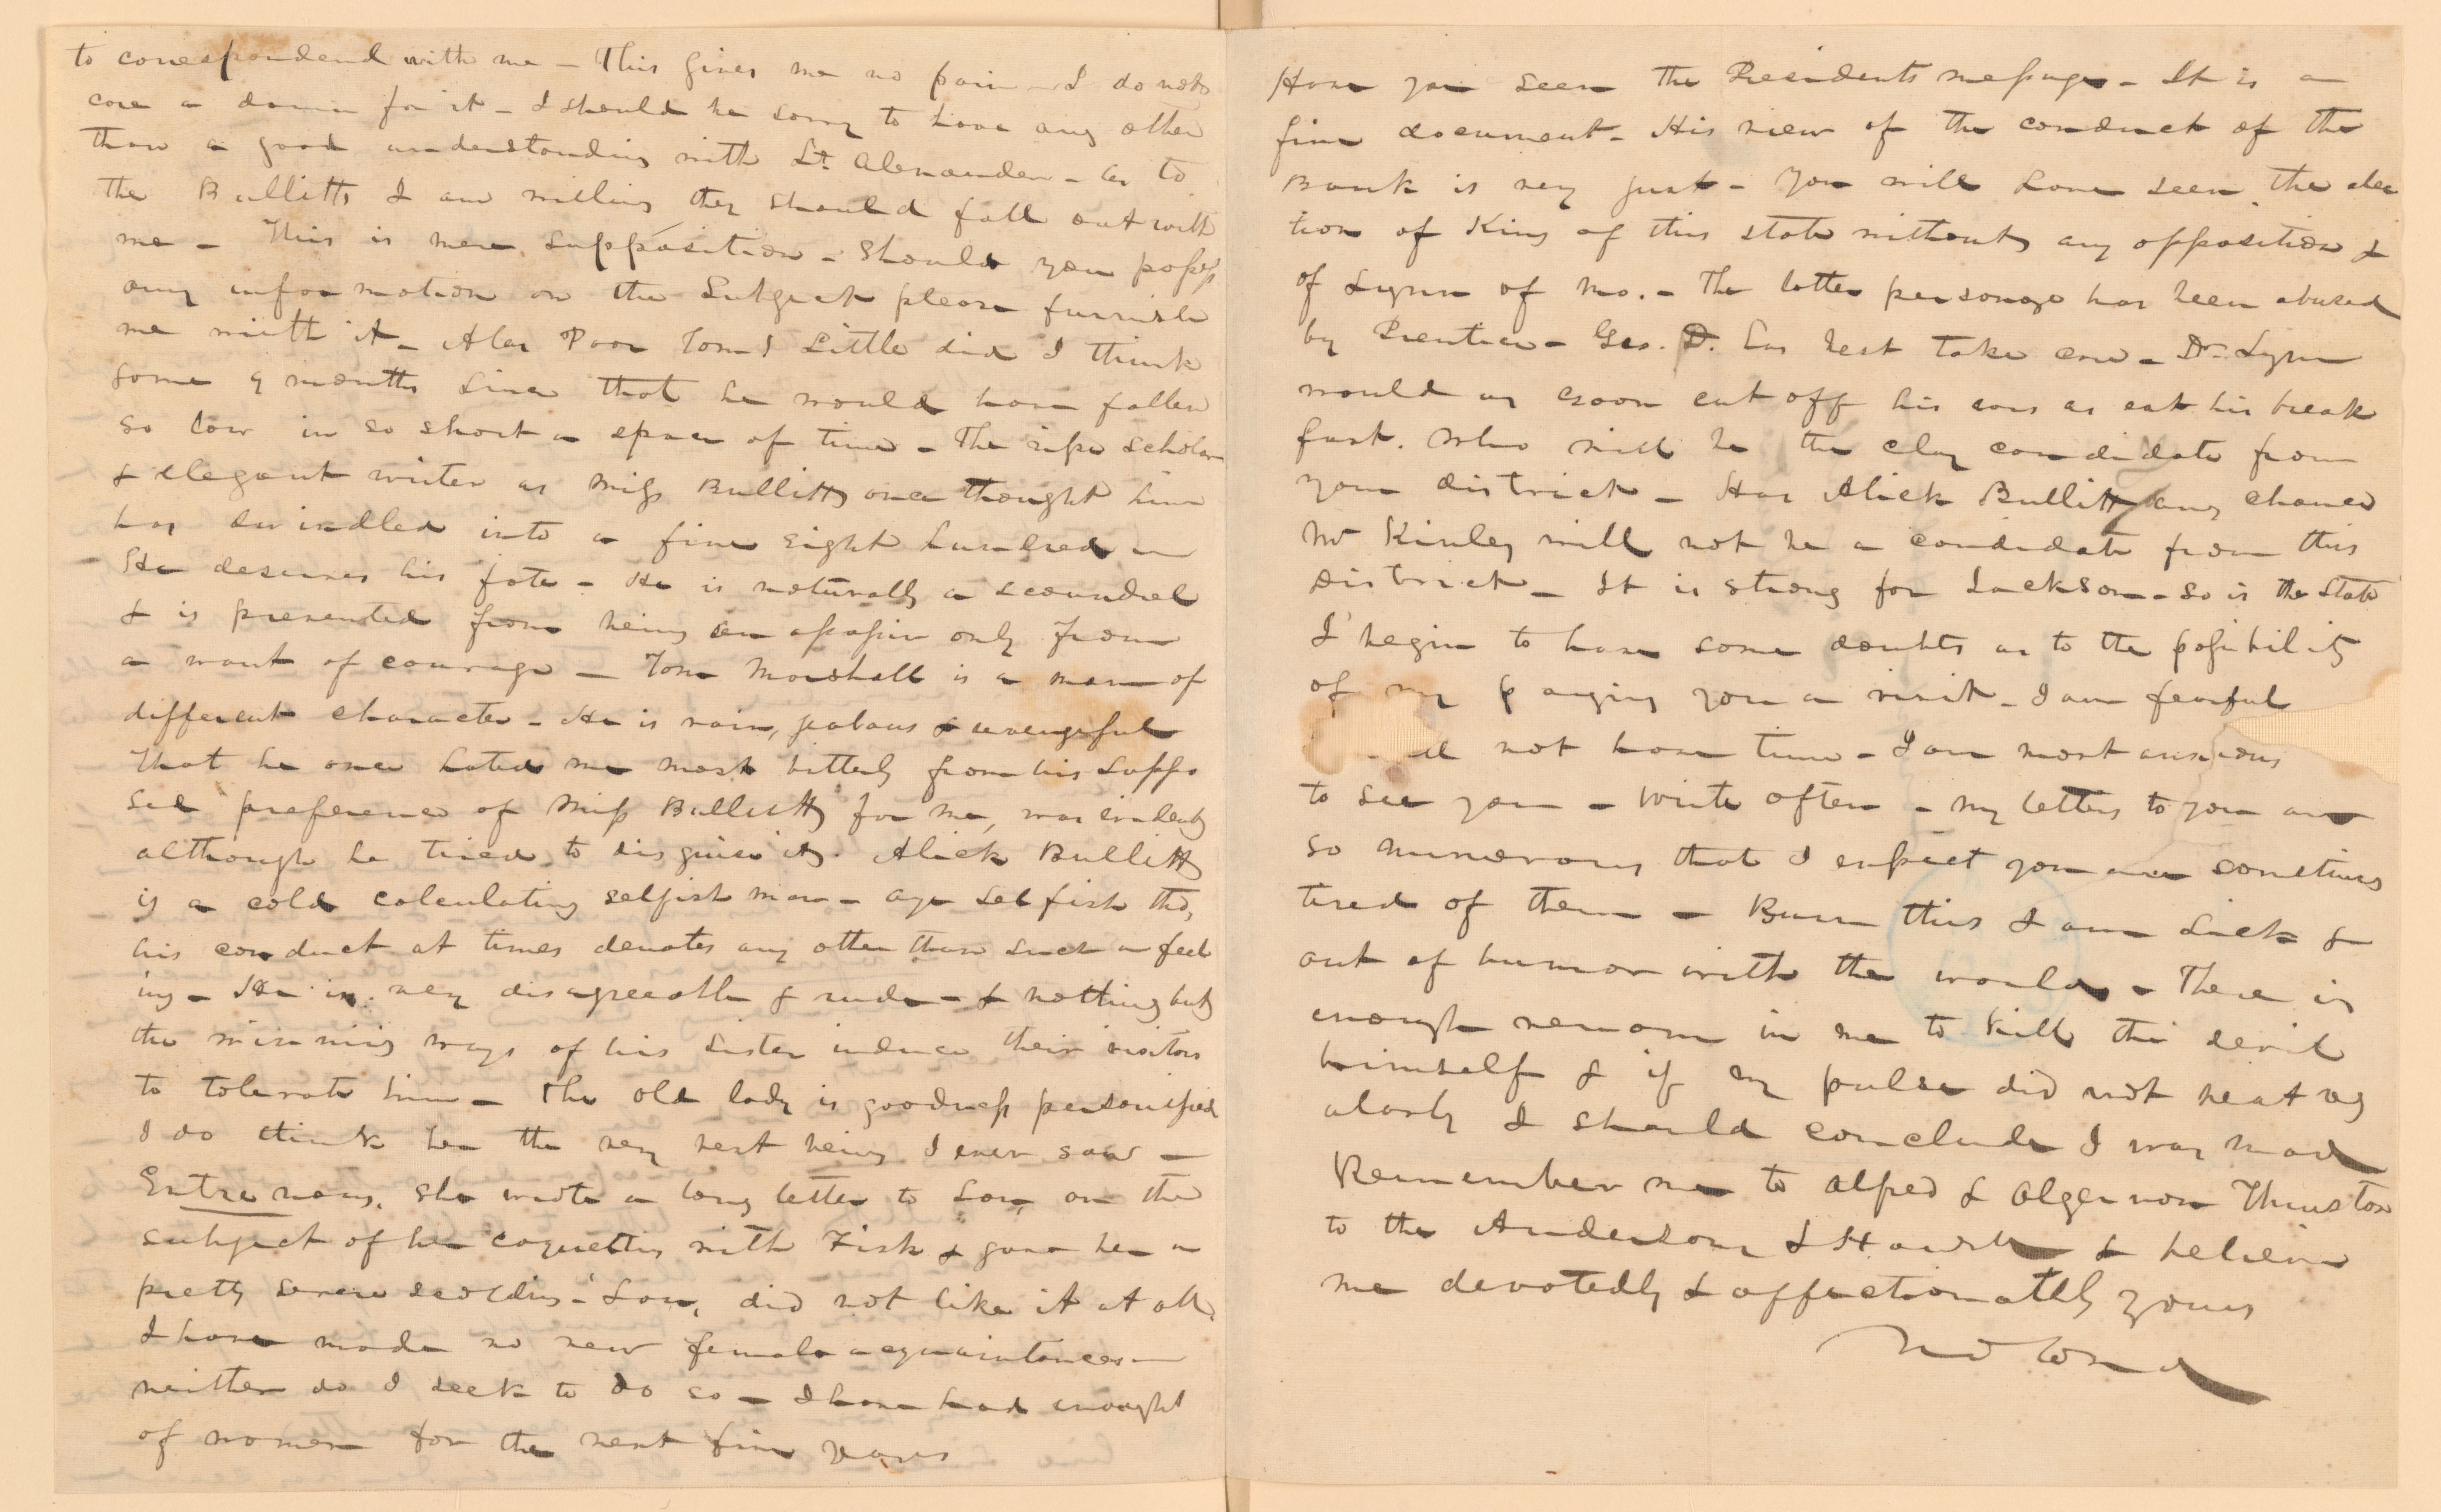 to correspondend with me – This gives me no pain – I do not
care a damn for it – I should be sorry to have any other
than a good understanding with Lt. Alexander – as to
the Bullitts I am willing they should fall out with
me – This is mere supposition – Should you possess
any information on the Subject please furnish
me with it – Alas Poor Tom! Little did I think
some 9 months since that he would have fallen
so low in so short a space of time – The ripe scholar
& elegant writer as Miss Bullitt once thought him
has dwindled into a fine eight hundred
– He deserves his fate – He is naturally a scoundrel
& is prevented from being an assassin only from
a want of courage – Tom Marshall is a man of
different character – He is vain, jealous & revengeful
That he once hated me most bitterly from his suppo
sed preference of Miss Bullitt for me, was evident
although he tried to disguise it. Alick Bullitt
is a cold calculating selfish man – aye selfish tho,
his conduct at times denotes any other than such a feel
ing – He is very disagreeable & rude – & nothing but
the winning ways of his sister induce their visitors
to tolerate him – The old lady is goodness personified
I do think her the very best being I ever saw –
Entre nous, she wrote a long letter to Lou, on the
subject of her coquetting with Fisk & gave her a
pretty severe scolding – Lou, did not like it at all
I have made no new female acquaintances –
neither do I seek to do so – I have had enough
of women for the next five years
Have you seen the Presidents message – It is a
fine document – His view of the conduct of the
Bank is very just – You will have seen the elec
tion of King of this state without any opposition &
of Lynn of Mo. – The latter personage has been abused
by Prentice – Geo. D. has best take care – Dr. Lynn
would as soon cut off his ears as eat his break
fast. Who will be the Clay candidate from
your district – Has Alick Bullitt any chance
McKinley will not be a candidate from this
District – It is strong for Jackson – so is the State
I begin to have some doubts as to the possibility
of my paying you a visit – I am fearful
not have time – I am most anxious
to see you – Write often – my letters to you are
so numerous that I expect you are sometimes
tired of them – Burn this I am sick &
out of humor with the world – There is
enough venom in me to kill the devil
himself & if my pulse did not beat reg
ularly I should conclude I was mad
Remember me to Alfred & Algernon Thruston
to the Andersons & & believe
me devotedly & affectionately yours